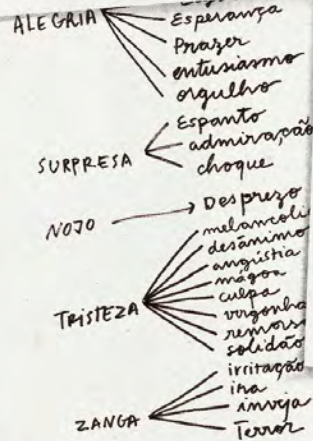 ALEGRIA
Esperança
Prazer
entusiasmo
orgulho
SURPRESA
Espanto
admiração
choque
NOJO
Desprezo
TRISTEZA
melancoli
desânimo
angústia
mágoa
culpa
vergonha
remors
solidão
ZANGA
irritação
ira
inveja
Terror